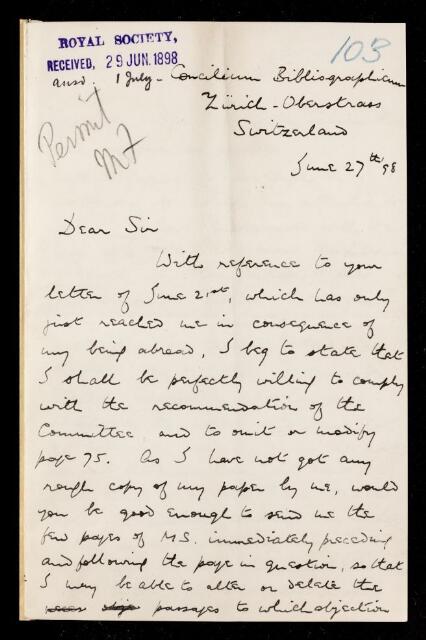 ROYAL SOCIETY,
RECEIVED, 29 JUN. 1898
103
ansd. 1 July - Concilium Bibliographicum
Zürich-Oberstrass
Switzerland
Permit
June 27th 98
Dear Sir
With reference to your
letter of June 21st, which has only
just reached me in consequence of
my being abroad, I beg to state that
I shall be perfectly willing to comply
with the recommendation of the
Committee and to omit or modify
page 75. As I have not got any
rough copy of my paper by me, would
you be good enough to send me the
few pages of M.S. immediately preceding
and following the page in question, so that
I may be able to alter or delete the
passages to which objection